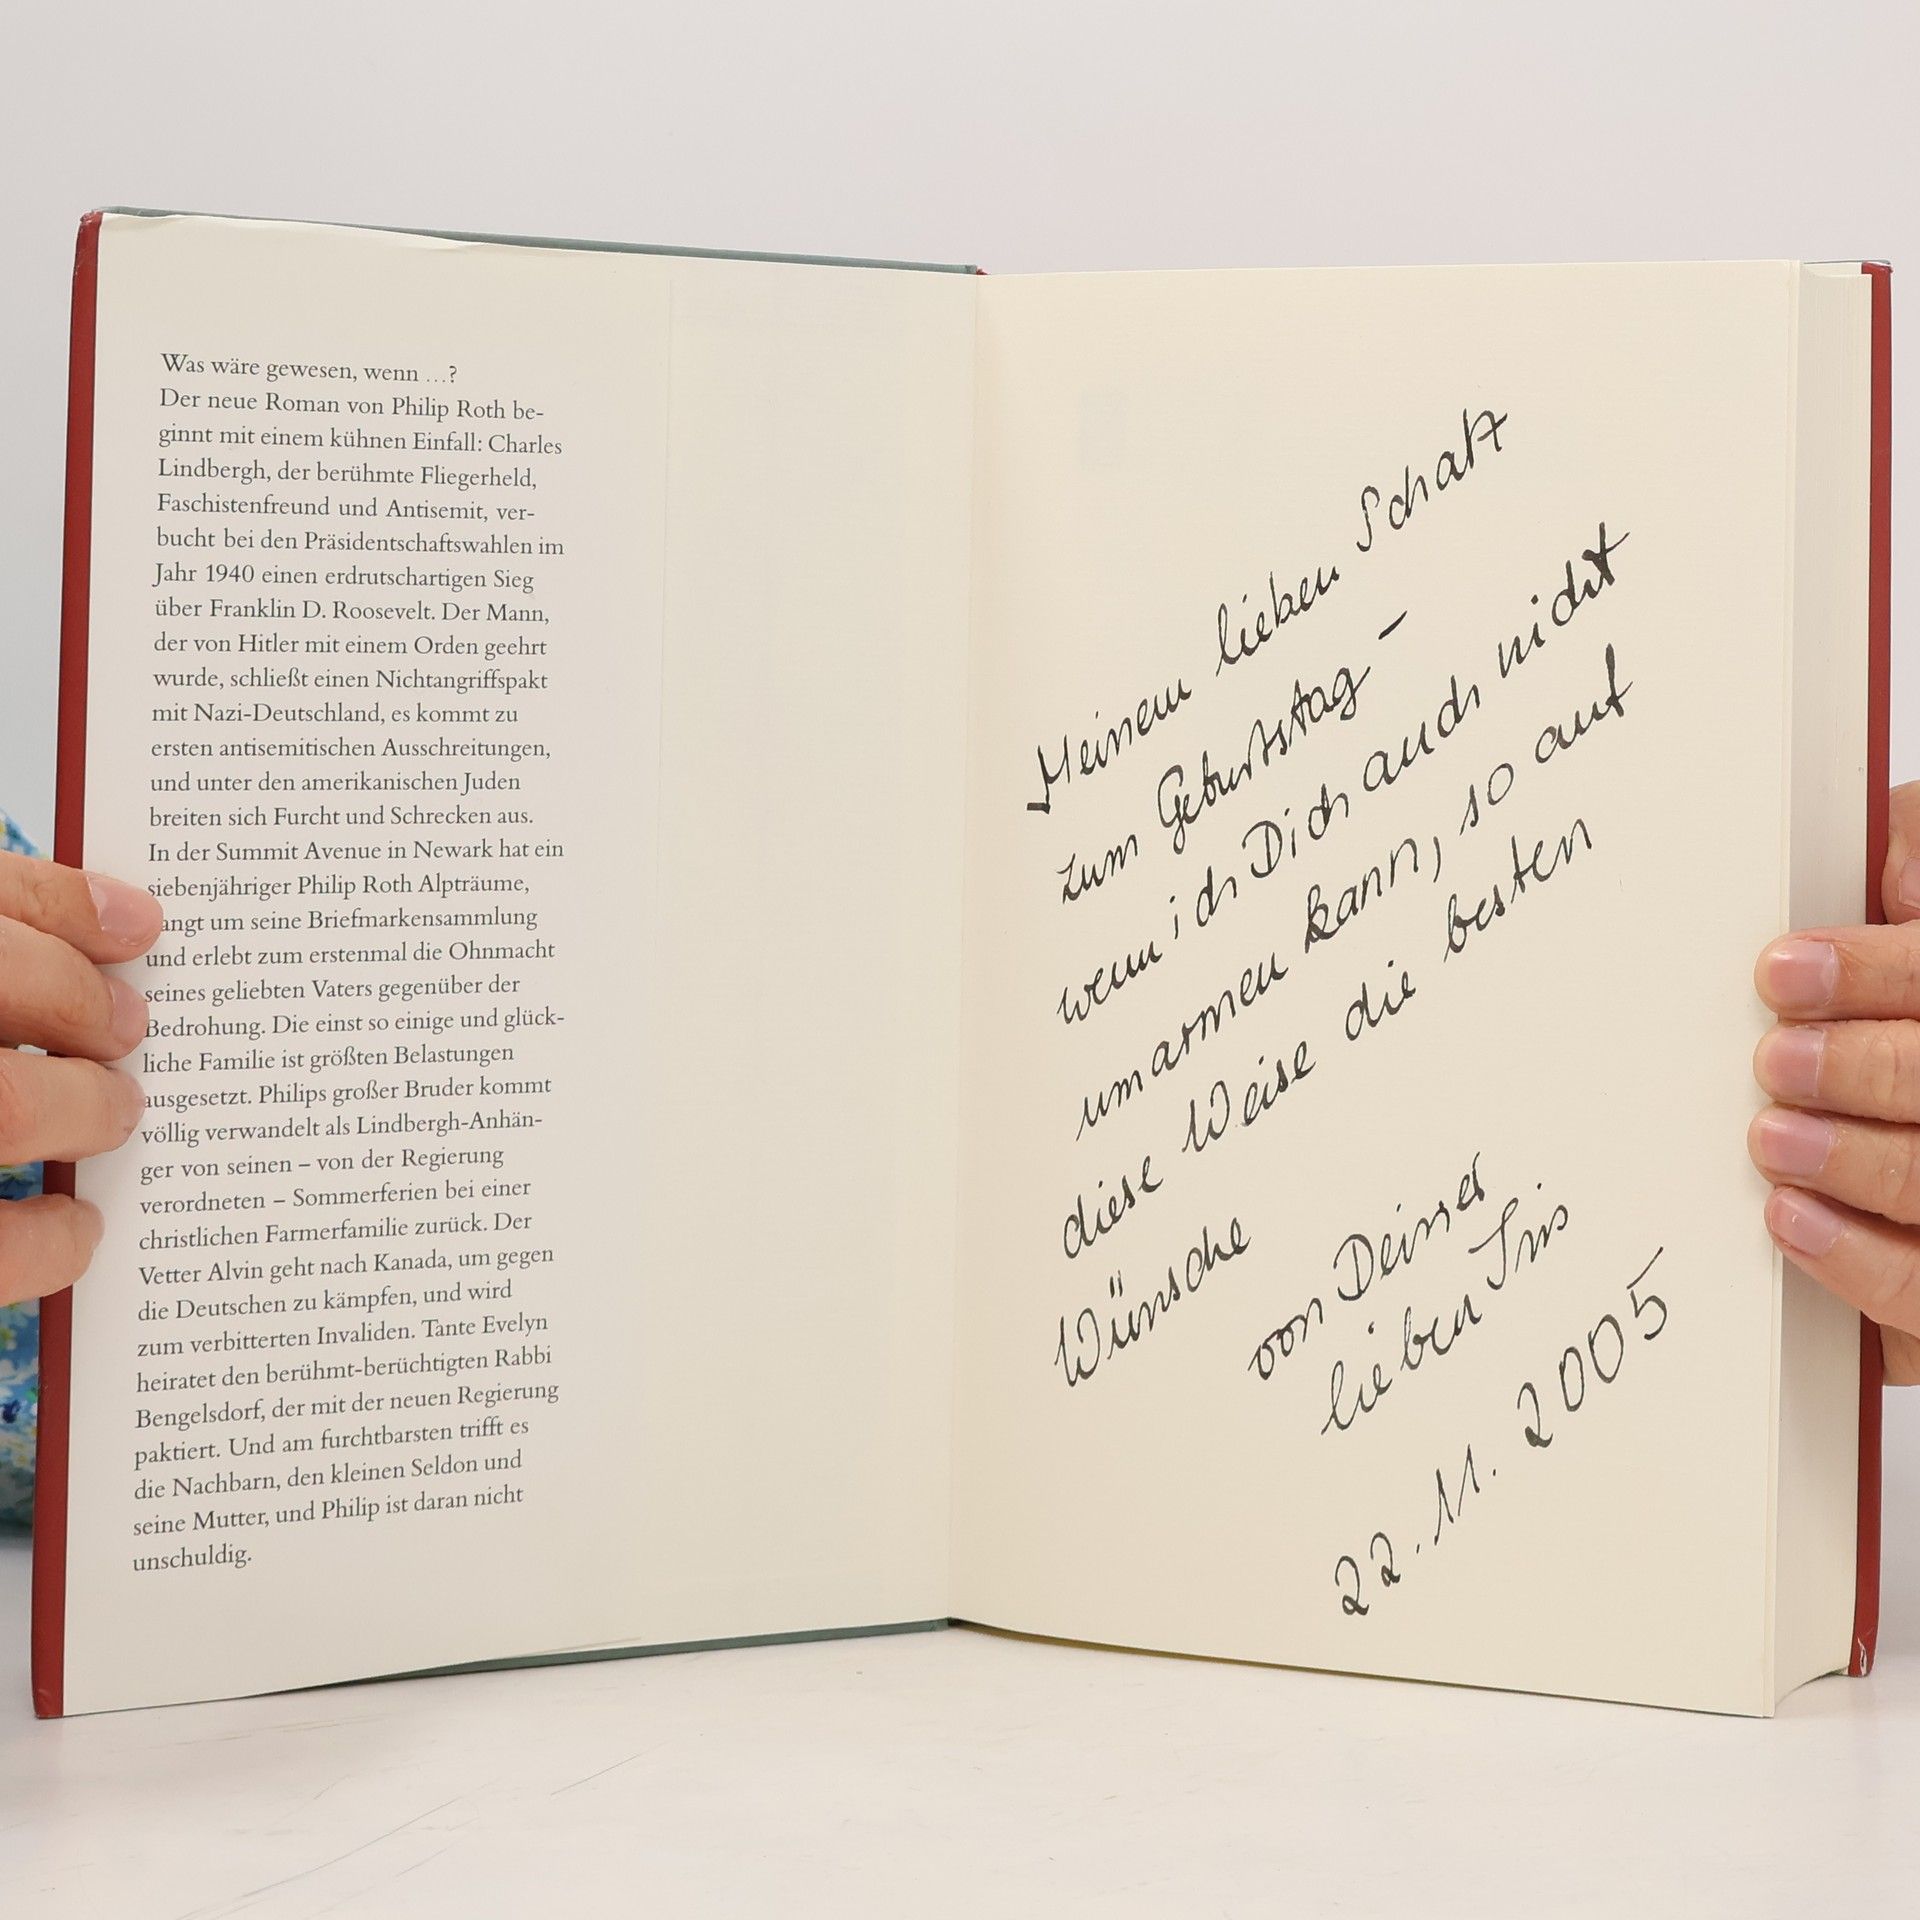 Was wäre gewesen, wenn …?
Der neue Roman von Philip Roth be-
ginnt mit einem kühnen Einfall: Charles
Lindbergh, der berühmte Fliegerheld,
Faschistenfreund und Antisemit, ver-
bucht bei den Präsidentschaftswahlen im
Jahr 1940 einen erdrutschartigen Sieg
über Franklin D. Roosevelt. Der Mann,
der von Hitler mit einem Orden geehrt
wurde, schließt einen Nichtangriffspakt
mit Nazi-Deutschland, es kommt zu
ersten antisemitischen Ausschreitungen,
und unter den amerikanischen Juden
breiten sich Furcht und Schrecken aus.
In der Summit Avenue in Newark hat ein
siebenjähriger Philip Roth Alpträume,
angt um seine Briefmarkensammlung
und erlebt zum erstenmal die Ohnmacht
seines geliebten Vaters gegenüber der
Bedrohung. Die einst so einige und glück-
liche Familie ist größten Belastungen
ausgesetzt. Philips großer Bruder kommt
völlig verwandelt als Lindbergh-Anhän-
ger von seinen – von der Regierung
verordneten – Sommerferien bei einer
christlichen Farmerfamilie zurück. Der
Vetter Alvin geht nach Kanada, um gegen
die Deutschen zu kämpfen, und wird
zum verbitterten Invaliden. Tante Evelyn
heiratet den berühmt-berüchtigten Rabbi
Bengelsdorf, der mit der neuen Regierung
paktiert. Und am furchtbarsten trifft es
die Nachbarn, den kleinen Seldon und
seine Mutter, und Philip ist daran nicht
unschuldig.
Meinem lieben Schatz
zum Geburtstag –
wenn ich Dich auch nicht
umarmen kann, so auf
diese Weise die besten
Wünsche
von Deiner
lieben
22.11.2005